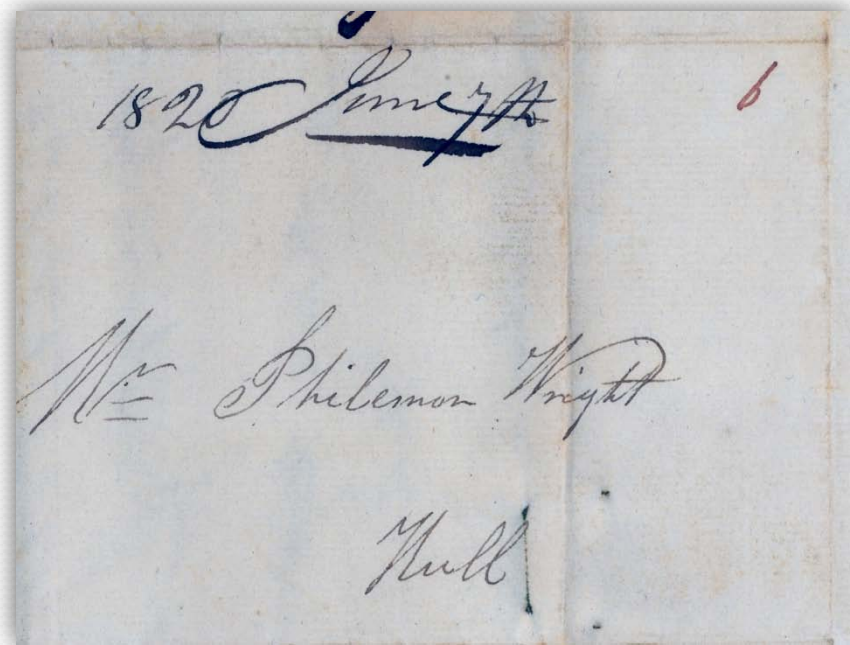 1820 June 7th 6
Mr Philemon Wright
Hull